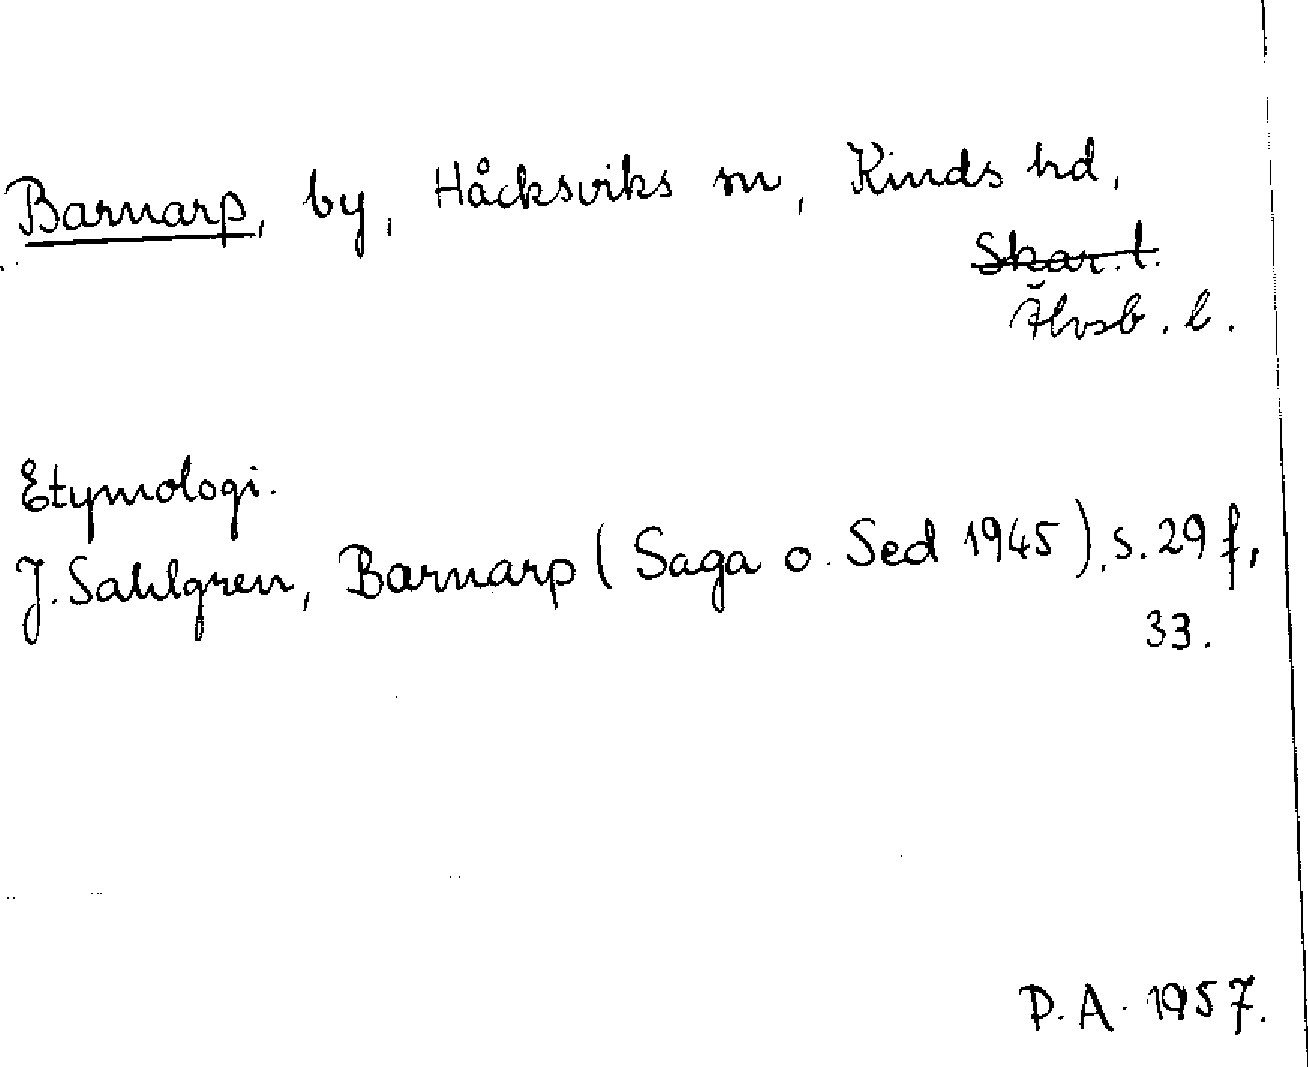 Barnarp, by, Håcksviks sn, Kinds hd,
Skar. l.
Älvsb. l.
Etymologi.
J. Sahlgren, Barnarp (Saga o. Sed 1945), s. 29 f,
33.
P. A. 1957.